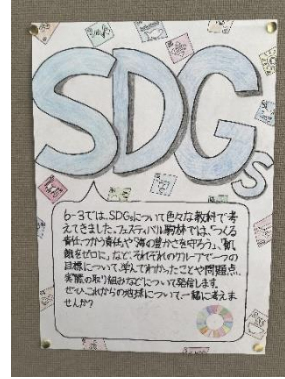 SDGs
6-3では、SDGsについて色々な教科で考
えてきました。フェスティバル駒林では、「つくる
責任、つかう責任」や「海の豊かさを守ろう」、「飢
餓をゼロに」など、それぞれのグループで一つの
目標について、学んでわかったことや問題点、
実際の取り組みなどについて発信します。
ぜひ、これからの地球について一緒に考えま
せんか？